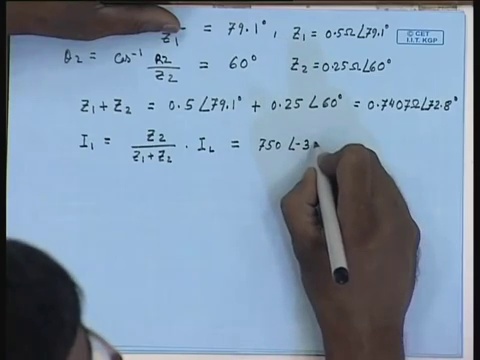 Z₁ = 79.1°, Z₁ = 0.5Ω∠79.1°
© CET
I.I.T. KGP
θ₂ = cos⁻¹ R₂/Z₂ = 60° Z₂ = 0.25Ω∠60°
Z₁ + Z₂ = 0.5∠79.1° + 0.25∠60° = 0.7407Ω∠72.8°
I₁ = Z₂/(Z₁+Z₂) · I_L = 750∠-3